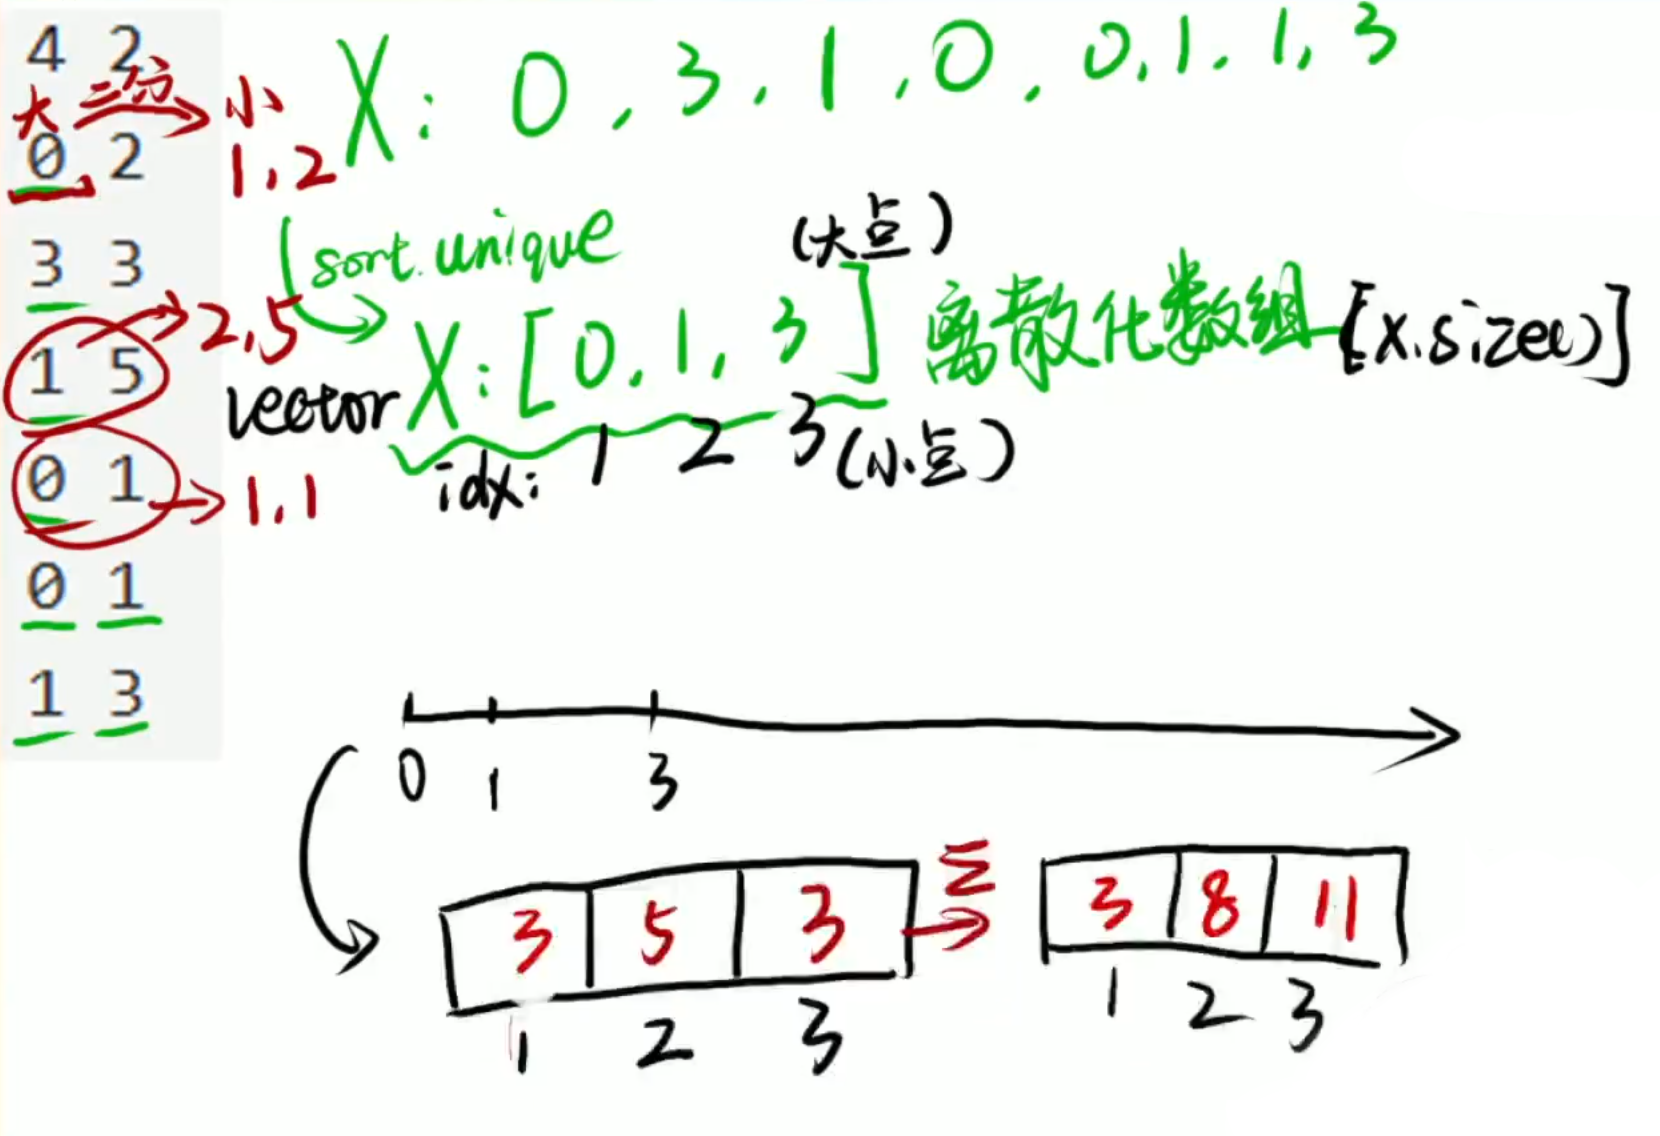 4 2
大 二分 小
0 2
1,2
3 3
1 5
2,5
0 1
1.1
0 1
1 3
X: 0, 3, 1, 0, 0, 1, 1, 3
sort.unique
(大点)
vector X: [0, 1, 3] 离散化数组 [X.size()]
idx: 1 2 3 (小点)
0 1 3
3 5 3 Σ 3 8 11
1 2 3 1 2 3